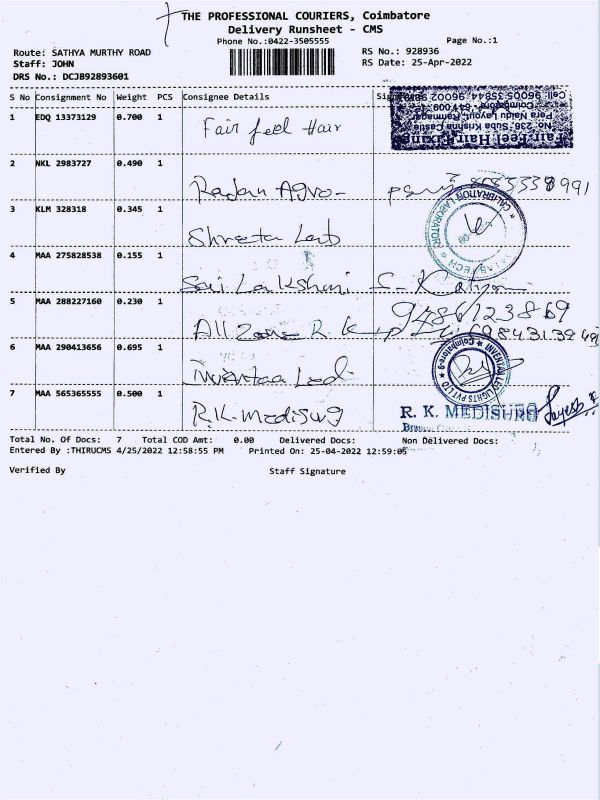 THE PROFESSIONAL COURIERS, Coimbatore
Delivery Runsheet - CMS
Phone No.:0422-3505555
Page No.:1
Route: SATHYA MURTHY ROAD
RS No.: 928936
Staff: JOHN
RS Date: 25-Apr-2022
DRS No.: DCJB92893601
S No Consignment No Weight PCS Consignee Details
1 EDQ 13373129 0.700 1 Fair feel Hair
Fair Feel Hair Fixing
No. 236, Suba Krishna Castle
Pera Naidu Layout, Ramnagar
Coimbatore - 641 009.
2 NKL 2983727 0.490 1 Radan Agro-
3 KLM 328318 0.345 1 Shreeta Lab
CALIBRATION LABORATORY
4 MAA 275828538 0.155 1 Sai Lakshmi
5 MAA 288227160 0.230 1 All Zone
9486123869
6 MAA 290413656 0.695 1 Inventaa Led
INVENTAA LED LIGHTS PVT LTD
Coimbatore-9
7 MAA 565365555 0.500 1 R.K. Medisurg
R. K. MEDISURG
Total No. Of Docs: 7 Total COD Amt: 0.00 Delivered Docs: Non Delivered Docs:
Entered By :THIRUCMS 4/25/2022 12:58:55 PM Printed On: 25-04-2022 12:59:05
Verified By Staff Signature